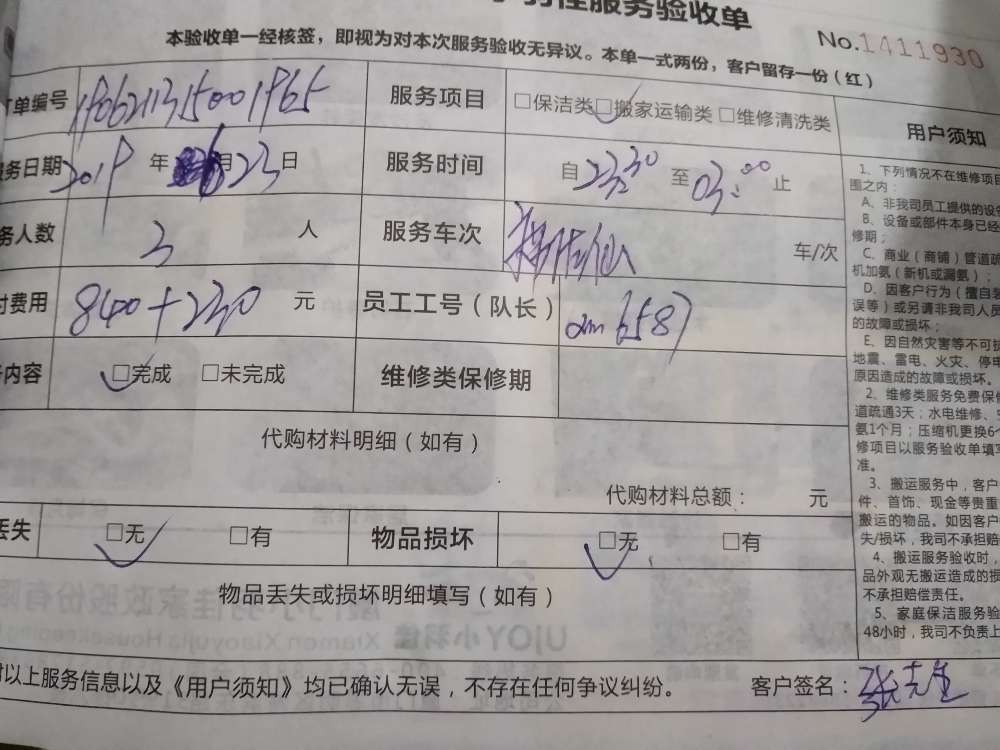 小羽佳服务验收单
No.1411930
本验收单一经核签，即视为对本次服务验收无异议。本单一式两份，客户留存一份（红）
单编号 服务项目 □保洁类 □搬家运输类 □维修清洗类
务日期 2019 年 6 月 23 日 服务时间 自 23:30 至 03:00 止
务人数 3 人 服务车次 车/次
付费用 840+230 元 员工工号（队长） 6587
内容 □完成 □未完成 维修类保修期
代购材料明细（如有）
代购材料总额： 元
丢失 □无 □有 物品损坏 □无 □有
物品丢失或损坏明细填写（如有）
以上服务信息以及《用户须知》均已确认无误，不存在任何争议纠纷。 客户签名：张先生
用户须知
1、下列情况不在维修项目
围之内：
A、非我司员工提供的设
B、设备或部件本身已经
修期；
C、商业（商铺）管道疏
机加氨（新机或漏氨）；
D、因客户行为（擅自
误等）或另请非我司人员
的故障或损坏；
E、因自然灾害等不可抗
地震、雷电、火灾、停电
原因造成的故障或损坏。
2、维修类服务免费保修
道疏通3天；水电维修、
氨1个月；压缩机更换6个
修项目以服务验收单填写
准。
3、搬运服务中，客户
件、首饰、现金等贵重
搬运的物品。如因客户
失/损坏，我司不承担赔
4、搬运服务验收时，
品外观无搬运造成的损
不承担赔偿责任。
5、家庭保洁服务验
48小时，我司不负责上